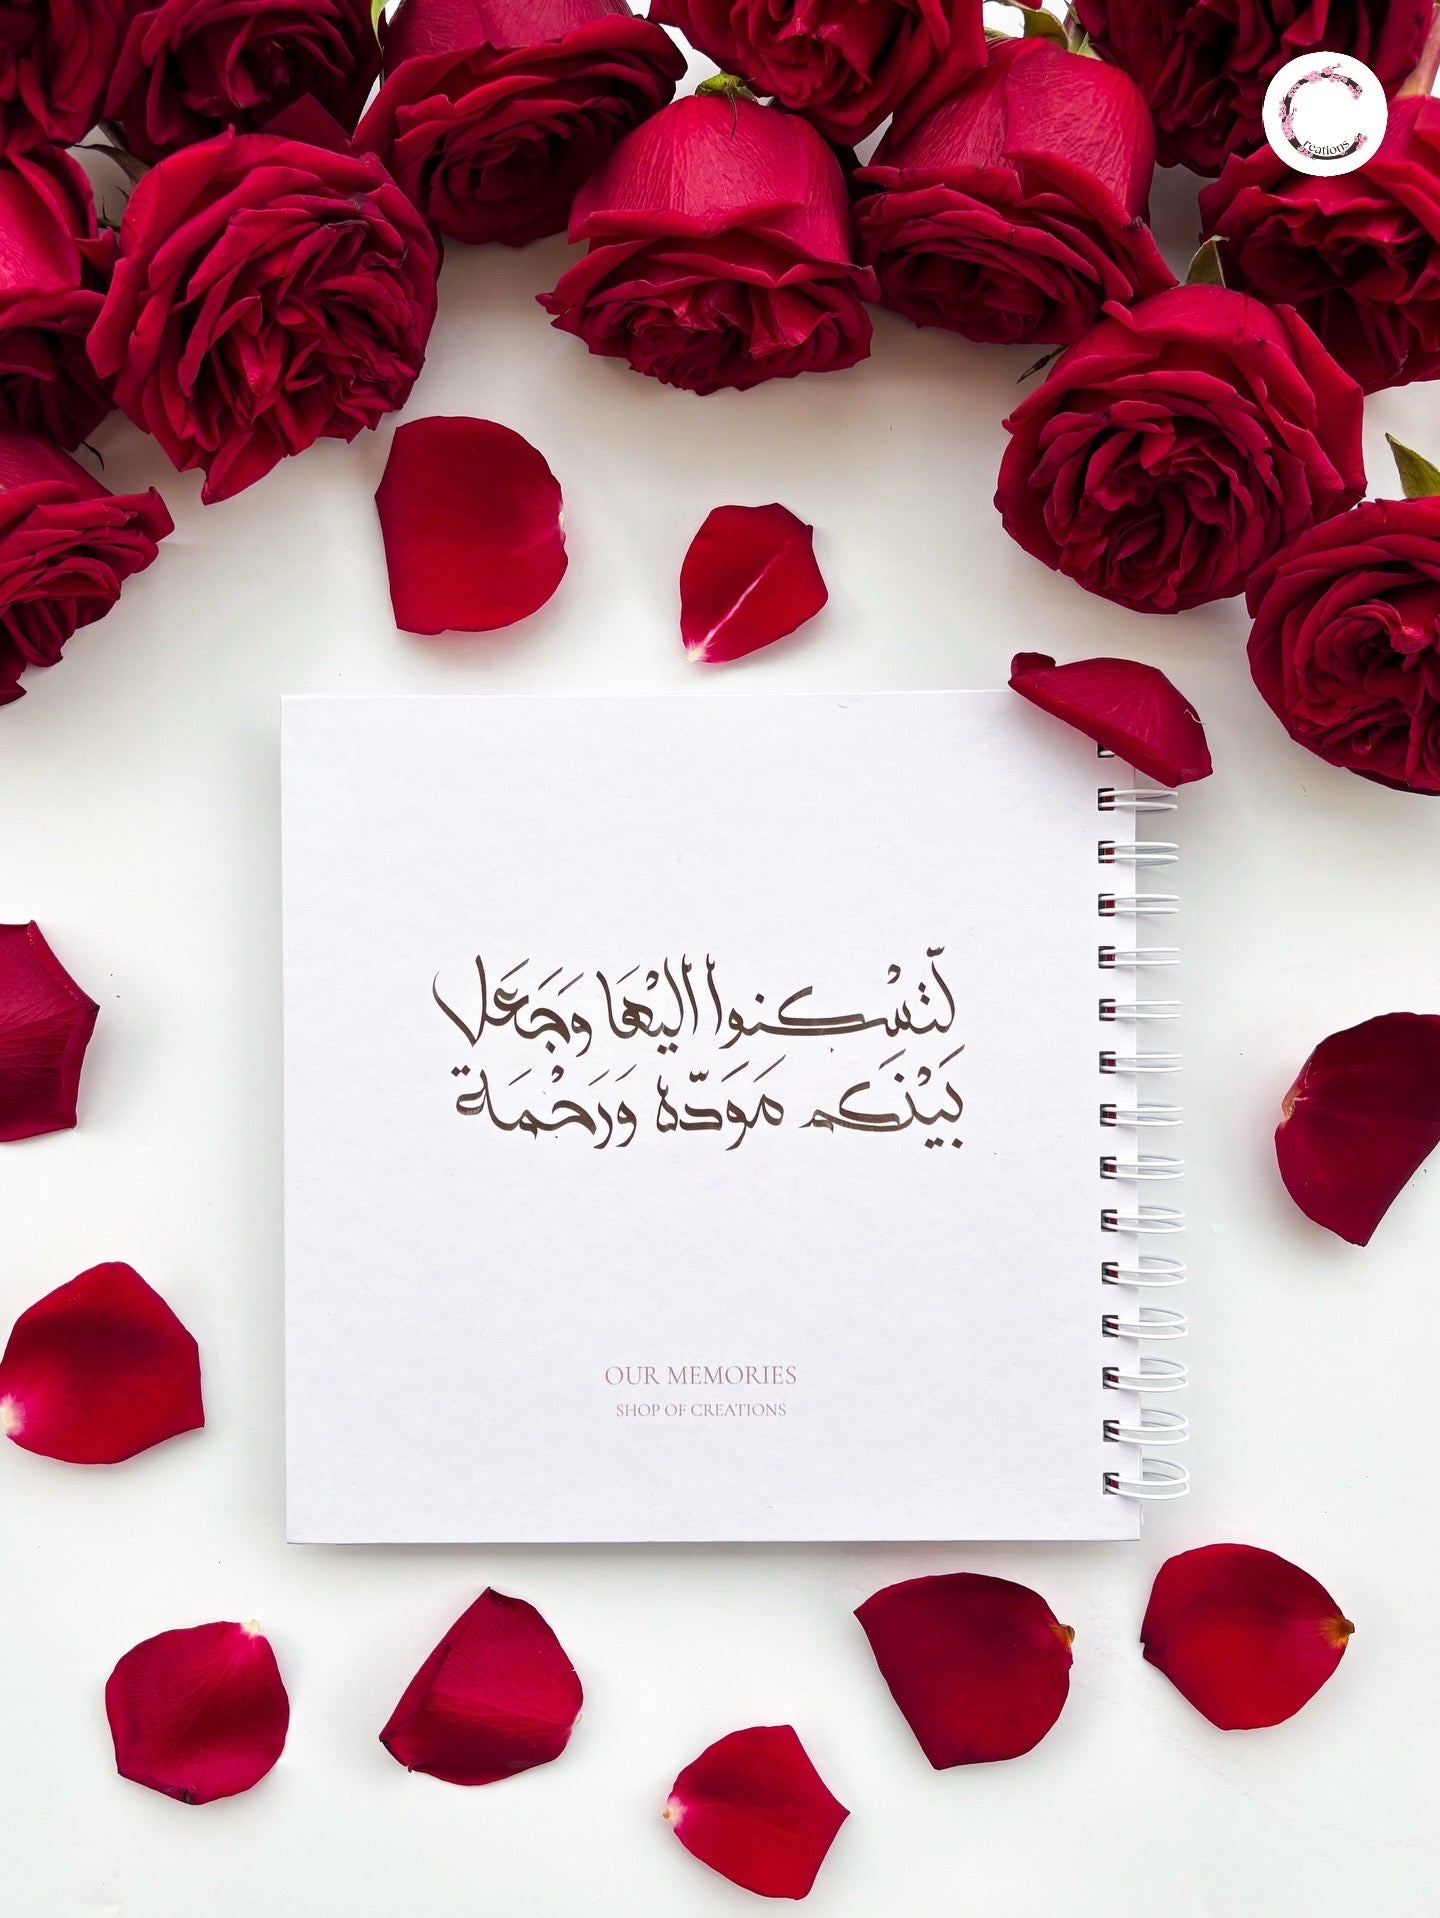 Creations
لّتسْكنوا اليْهَا وَجَعَل
بَيْنَكم مَوَدّة وَرَحْمَة
OUR MEMORIES
SHOP OF CREATIONS